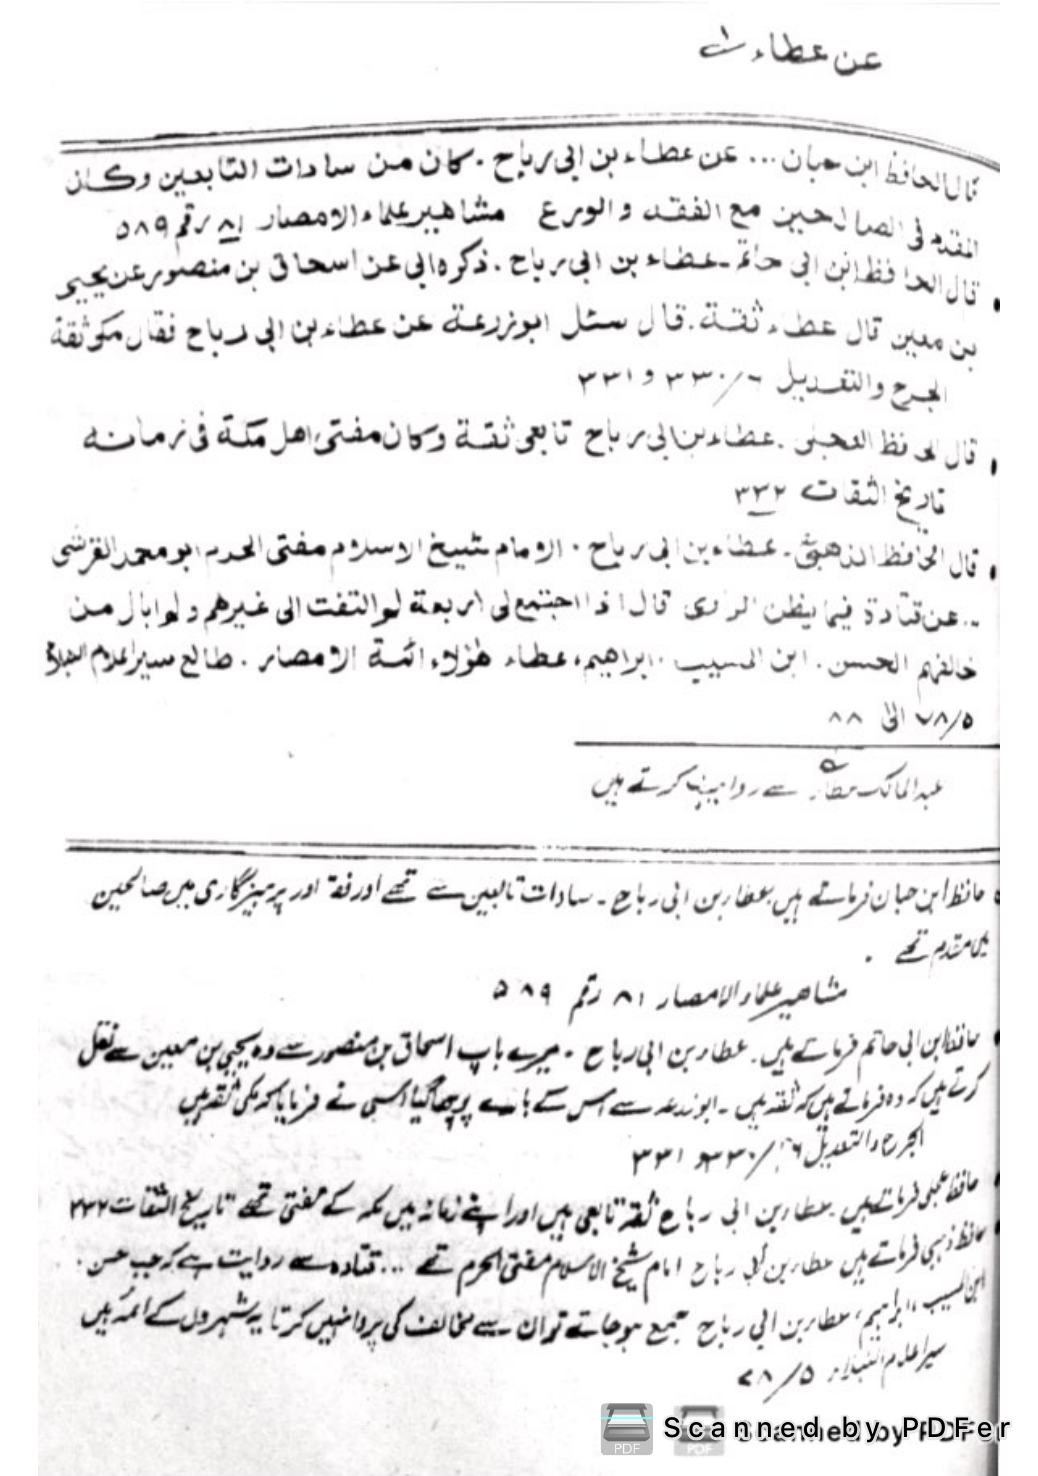 عن عطاء
قال الحافظ ابن حبان ... عن عطاء بن ابی رباح . کان من سادات التابعین وکان
المقدم فی الصالحین مع الفقه والورع مشاهیر علماء الامصار ۸۱ رقم ۵۸۹
قال الحافظ ابن ابی حاتم ـ عطاء بن ابی رباح . ذکره ابی عن اسحاق بن منصور عن یحیی
بن معین قال عطاء ثقة . قال سئل ابو زرعة عن عطاء بن ابی رباح فقال مکی ثقة
الجرح والتعدیل ۶/۳۳۰ و ۳۳۱
قال الحافظ العجلی . عطاء بن ابی رباح تابعی ثقة وکان مفتی اهل مکة فی زمانه
تاریخ الثقات ۳۳۲
قال الحافظ الذهبی ـ عطاء بن ابی رباح . الامام شیخ الاسلام مفتی الحرم ابو محمد القرشی
... عن قتادة فیما یظن الراوی قال اذا اجتمع لی اربعة لم التفت الی غیرهم ولم ابال من
خالفهم الحسن . ابن المسیب . ابراهیم، عطاء هؤلاء ائمة الامصار . طالع سیر اعلام النبلاء
۷۸/۵ الی ۸۸
عبدالمالک عطاء سے روایت کرتے ہیں
حافظ ابن حبان فرماتے ہیں عطاء بن ابی رباح ـ سادات تابعین سے تھے اور فقہ اور پرہیزگاری میں صالحین
میں مقدم تھے .
مشاهیر علماء الامصار ۸۱ رقم ۵۸۹
حافظ ابن ابی حاتم فرماتے ہیں . عطاء بن ابی رباح . میرے باپ اسحاق بن منصور سے وہ یحیی بن معین سے نقل
کرتے ہیں کہ وہ فرماتے ہیں کہ ثقہ ہیں ـ ابوزرعہ سے اس کے بارے پوچھا گیا اسی نے فرمایا کہ مکی ثقہ ہیں
الجرح والتعدیل ۶/۳۳۰ و ۳۳۱
حافظ عجلی فرماتے ہیں . عطاء بن ابی رباح ثقہ تابعی ہیں اور اپنے زمانہ میں مکہ کے مفتی تھے تاریخ الثقات ۳۳۲
حافظ ذہبی فرماتے ہیں عطاء بن ابی رباح امام شیخ الاسلام مفتی الحرم تھے ... قتادہ سے روایت ہے کہ جب حسن .
ابن المسیب، ابراہیم، عطاء بن ابی رباح جمع ہو جاتے تو ان سے مخالف کی پروا نہیں کرتا یہ شہروں کے ائمہ ہیں
سیر اعلام النبلاء ۵/۷۸
Scanned by PDFer
Scanned by PDFer